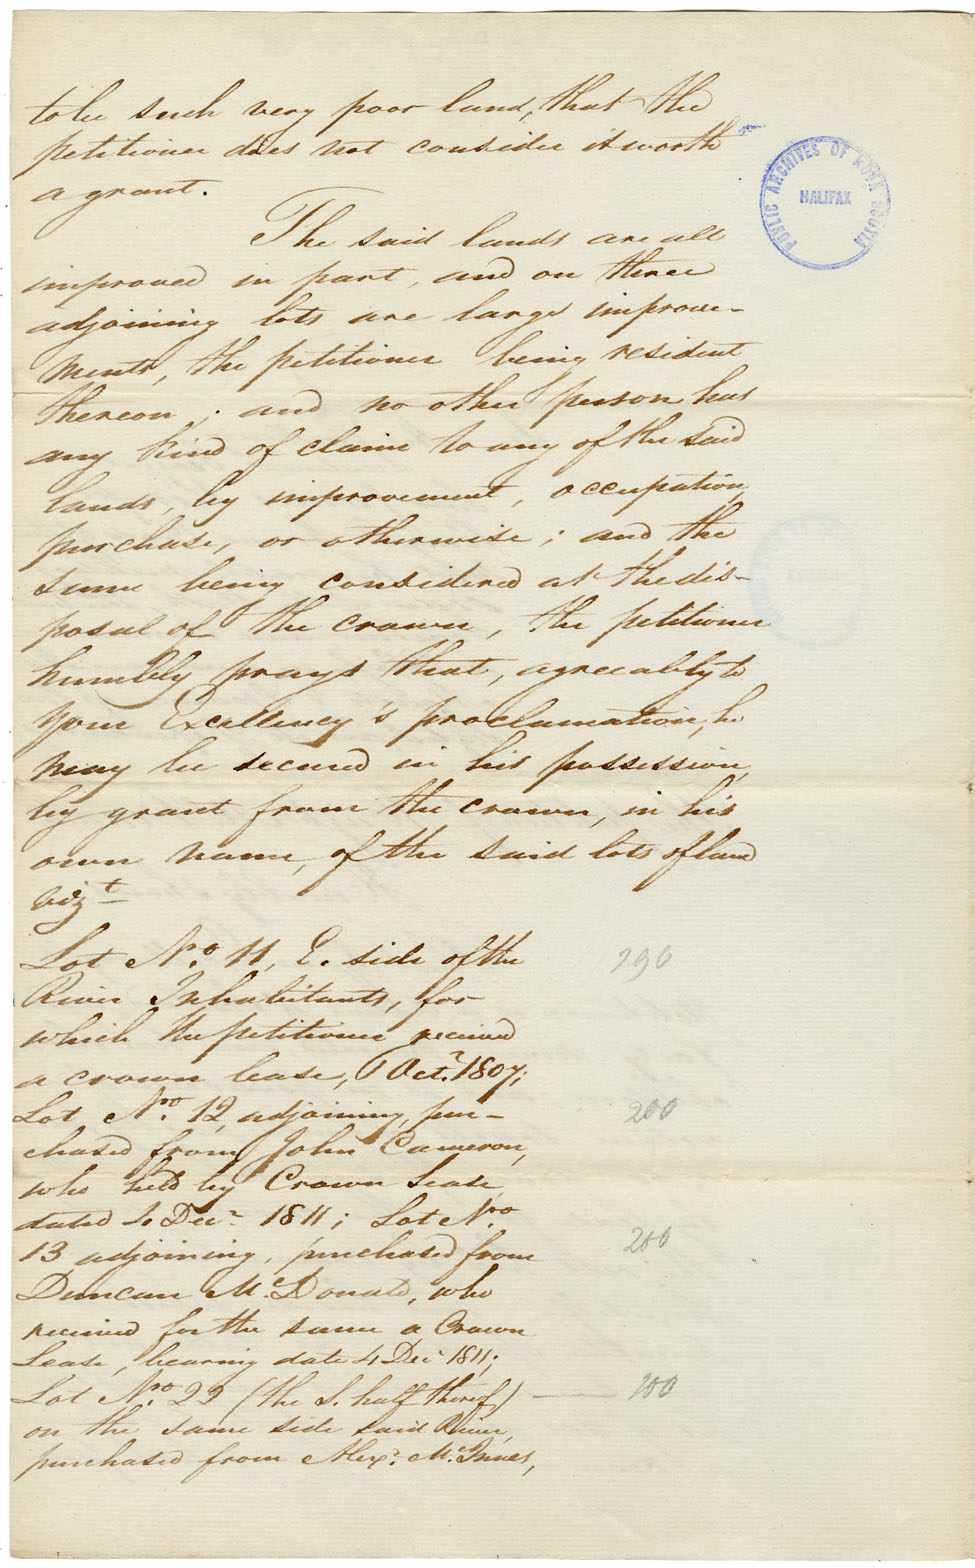 to be such very poor land, that the
petitioner does not consider it worth
a grant.
PUBLIC ARCHIVES OF NOVA SCOTIA
HALIFAX
The said lands are all
improved in part, and on three
adjoining lots are large improve-
ments, the petitioner being resident
thereon; and no other person has
any kind of claim to any of the said
lands, by improvement, occupation,
purchase, or otherwise; and the
same being considered at the dis-
posal of the crown, the petitioner
humbly prays that, agreeably to
your Excellency's proclamation, he
may be secured in his possession,
by grant from the crown, in his
own name, of the said lots of land
vizt
Lot No. 11, E. side of the 290
River Inhabitants, for
which the petitioner received
a crown lease, 1 Octr. 1807;
Lot No. 12, adjoining, pur- 200
chased from John Cameron,
who held by Crown Lease,
dated 4 Decr 1811; Lot No.
13 adjoining, purchased from 200
Duncan McDonald, who
received for the same a Crown
Lease, bearing date 4 Decr 1811;
Lot No. 22 (the S. half thereof) — 100
on the same side said River,
purchased from Alexr. McInnes,